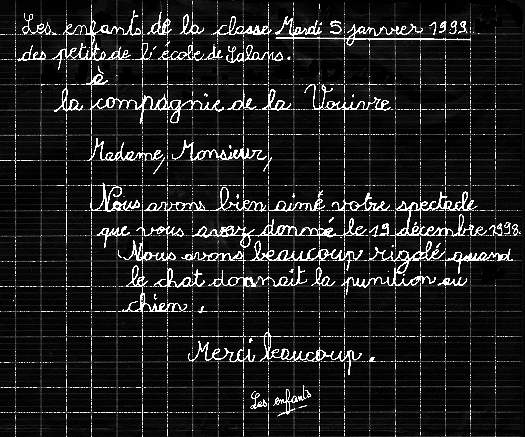 Les enfants de la classe Mardi 5 janvier 1999
des petits de l'école de Salans.
à
la compagnie de la Vouivre
Madame, Monsieur,
Nous avons bien aimé votre spectacle
que vous avez donné le 19 décembre 1998.
Nous avons beaucoup rigolé quand
le chat donnait la punition au
chien.
Merci beaucoup.
Les enfants